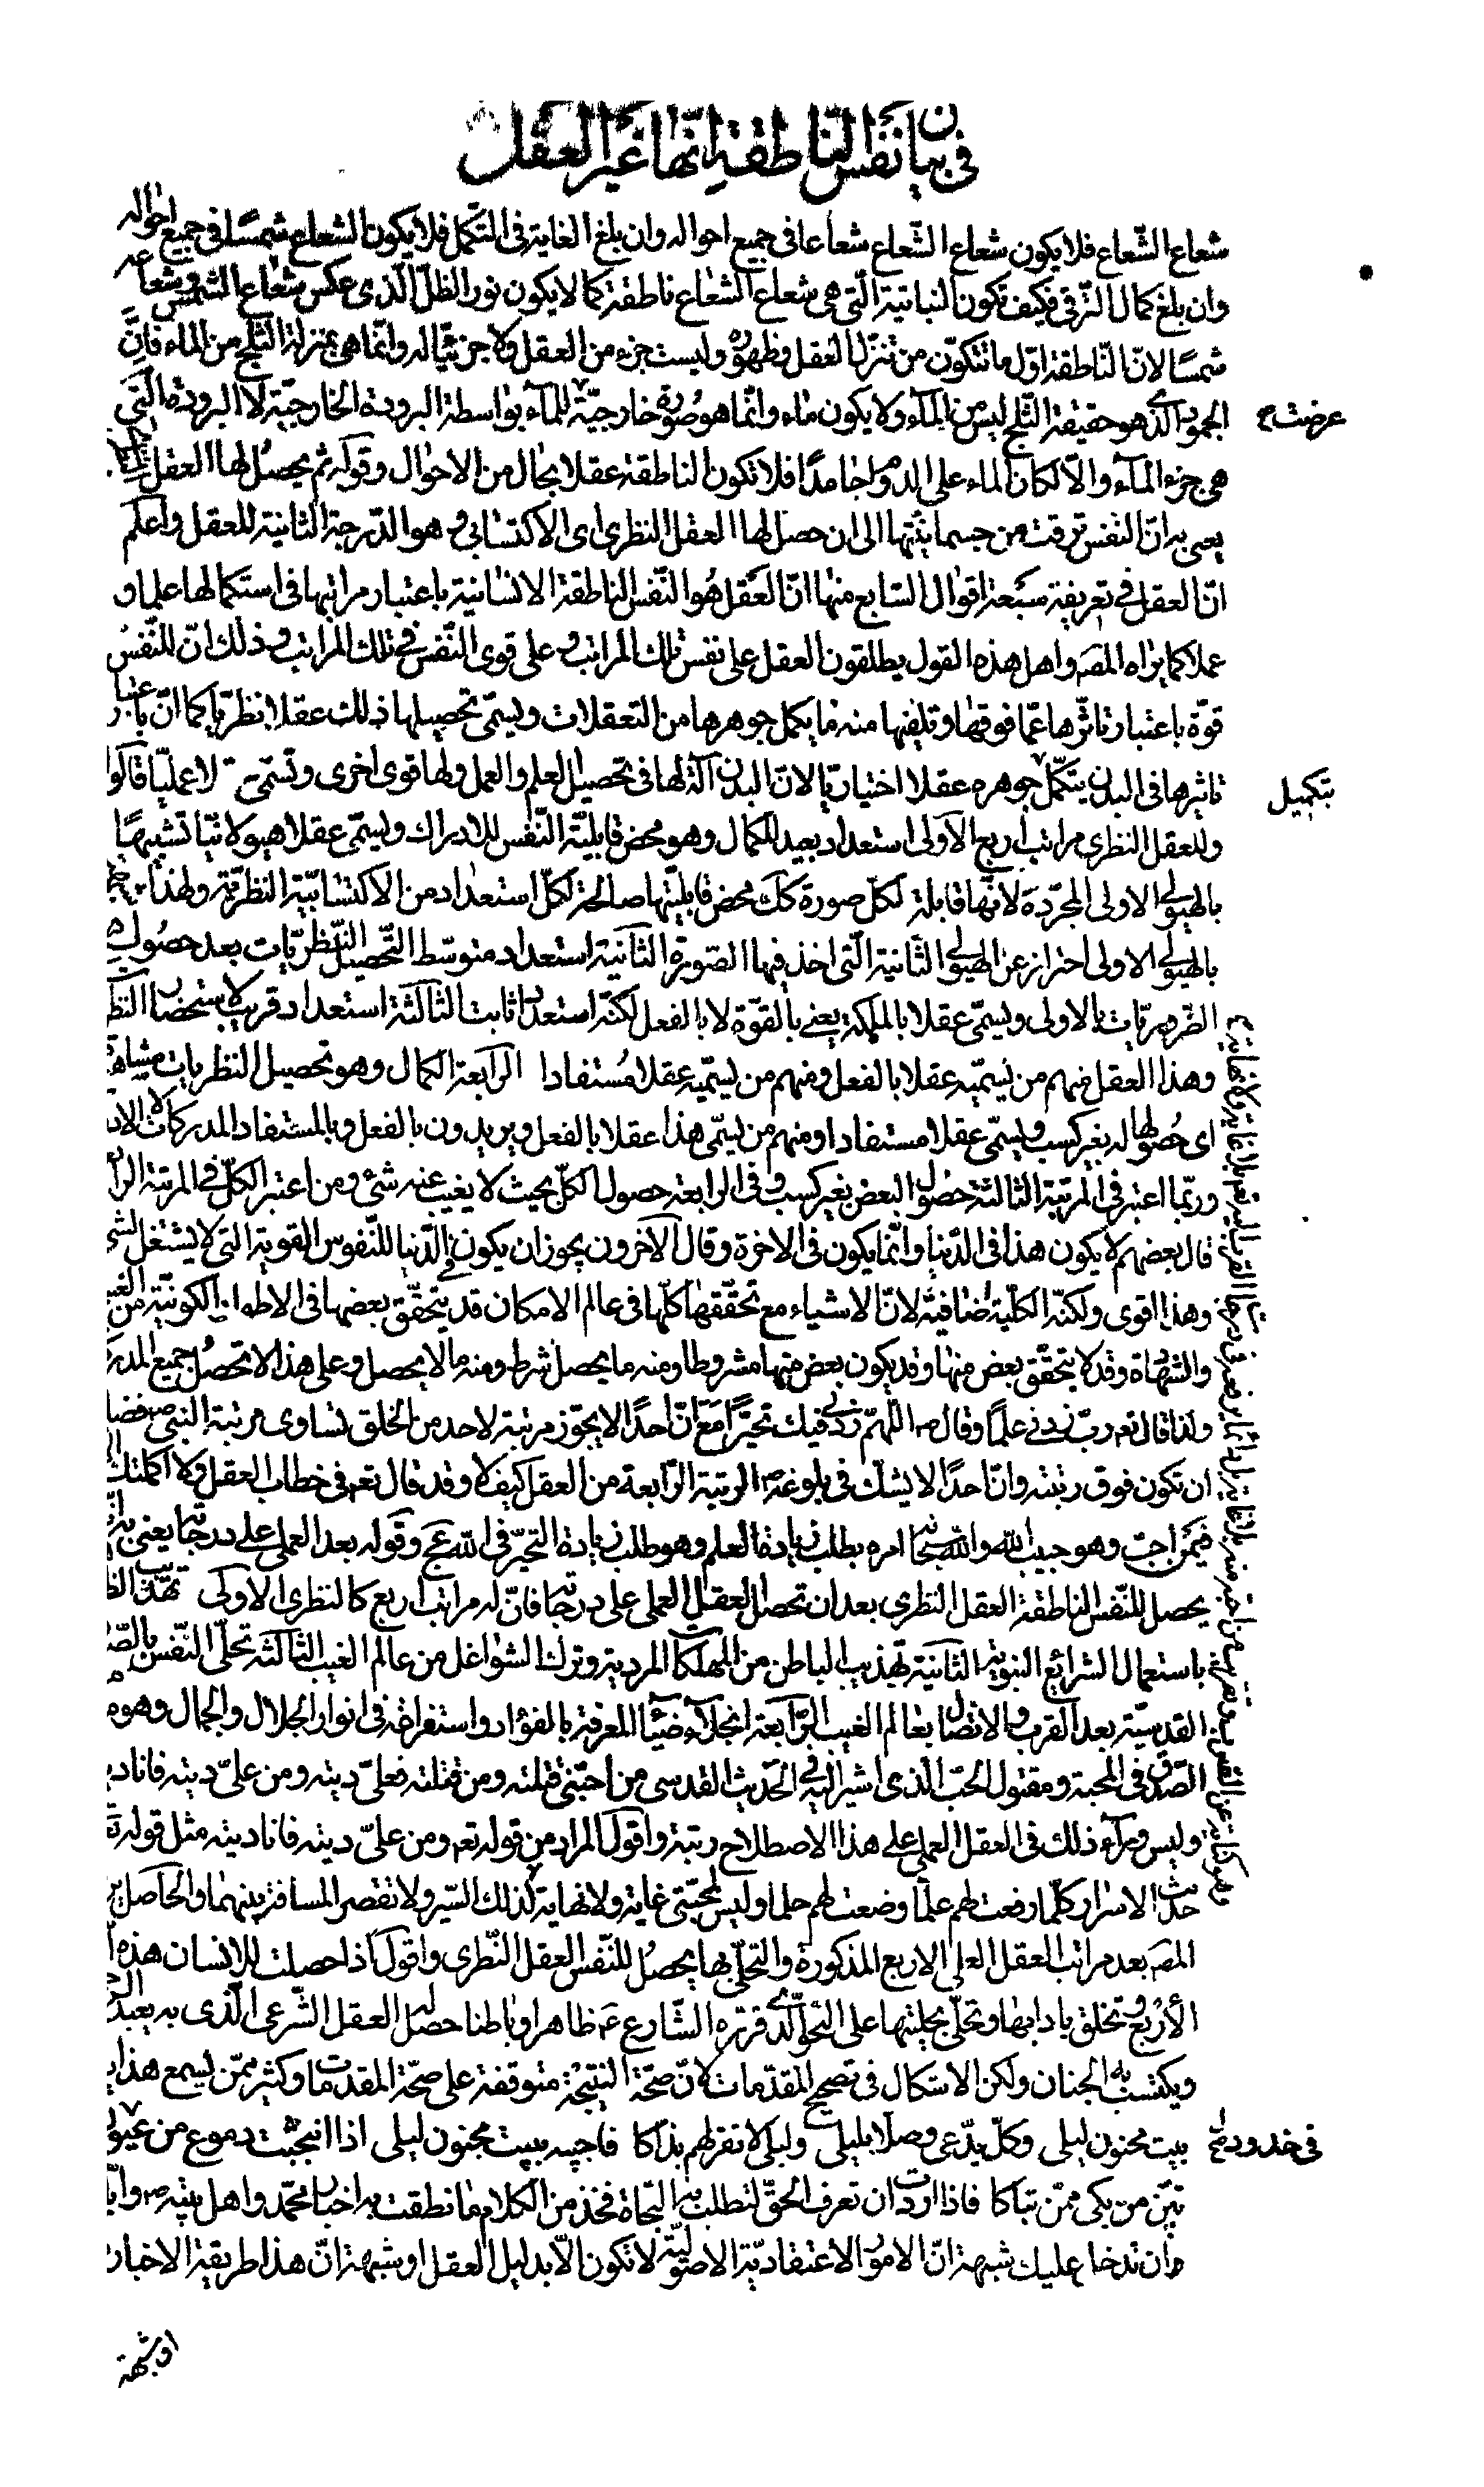 في بيان نفس الناطقة انها غير العقل
شعاع الشّعاع فلا يكون شعاع الشّعاع شعاعا في جميع احواله وان بلغ الغاية في التكمل فلا يكون الشعاع شمسًا في جميع احواله
وان بلغ كمال الترقي فكيف تكون النباتية الّتي هي شعاع الشعاع ناطقة كما لا يكون نور الظلّ الّذي عكس شعاع الشمس وشعاعه
شمسًا لانّ الناطقة اوّل ما تتكوّن من تنزل العقل وظهوره وليست جزء من العقل ولا جزئيّا له وانّما هي بمنزلة الثلج من الماء فانّ
الجمود الذي هو حقيقة الثلج ليس من المآء ولا يكون ماء وانّما هو صُورة خارجيّة للمآء بواسطة البرودة الخارجيّة لا البرودة الّتي
عرضت ح
هي جزء المآء والّا لكان الماء على الدوام جامدًا فلا تكون الناطقة عقلا بحال من الاحوال وقوله ثم يحصل لها العقل
يعني به انّ النفس ترقت من جسمانيّتها الى ان حصل لها العقل النظري اي الاكتسابي وهو الدّرجة الثانية للعقل واعلم
انّ العقل في تعريفه سبعة اقوال السّابع منها انّ العقل هُو النّفس الناطقة الانسانية باعتبار مراتبها في استكمالها علما و
عملا كما يراه المصـ واهل هذه القول يطلقون العقل على نفس تلك المراتب وعلى قوى النّفس في تلك المراتب وذلك انّ للنّفسُ
قوّة باعتبار تاثّرها عمّا فوقها وتلقيها منه ما يكمل جوهرها من التعقلات ويسمّى تحصيلها ذلك عقلا نظريّا كما انّ باعتبار
تاثيرها في البدن يتكمّل جوهره عقلا اختياريّا لانّ البدن آلة لها في تحصيل العلم والعمل ولها قوى اخرى وتسمّى لا عمليّا قالوا
تكميل
وللعقل النظري مراتب اربع الاولى استعداد بعيد للكمال وهو محض قابليّة النّفس للادراك ويسمّى عقلا هيولانيّا تشبيهًا
بالهيولى الاولى المجرّدة لانّها قابلة لكلّ صورة كك محض قابليّتها صالحة لكلّ استعداد من الاكتسابيّة النظريّة ولهذا
بالهيولى الاولى احتراز عن الهيولى الثانية الّتي اخذ فيها الصّورة الثانية استعداد متوسّط لتحصيل النّظريّات بعد حصُول
الضّروريّات بالاولى ويسمّى عقلا بالملكة يعني بالقوّة لا بالفعل لكنّه استعداد ثابت الثالثة استعداد قريب لاستحضار النظ
وهذا العقل فمنهم من يسمّيه عقلا بالفعل ومنهم من يسمّيه عقلا مُستفادا الرّابعة الكمال وهو تحصيل النظريات مشاهدة
اي حُصُولها له بغير كسب ويسمّى عقلا مستفادا ومنهم من يسمّى هذا عقلا بالفعل ويريدون بالفعل وبالمستفاد المدركات
وربّما اعتبر في المرتبة الثالثة حصُول البعض بغير كسب وفي الرابعة حصول الكلّ بحيث لا يغيب عنه شئ ومن اعتبر الكلّ في المرتبة الرا
قال بعضهم لا يكون هذا في الدّنيا وانّما يكون في الاخرة وقال الآخرون يجوز ان يكون في الدّنيا للنّفوس القوية التي لا يشتغل
وهذا اقوى ولكنّه الكلّية اضافيّة لانّ الاشياء مع تحقّقها كلّها في عالم الامكان قد يتحقّق بعضها في الاطوار الكونيّة من الغيب
والشّهادة وقد لا يتحقّق بعض منها وقد يكون بعض منها مشروطا ومنه ما يحصل شرطه ومنه ما لا يحصل وعلى هذا لا تحصُل جميع المدر
ولذا قال تعـ ربّ زدني علمًا وقال صـ اللّهمّ زدني فيك تحيّرًا مَعَ انّ احدًا لا يجوّز مرتبة لاحد من الخلق تساوي مرتبة النبي صـ فضلا
ان تكون فوق رتبته وانّ احدًا لا يشكّ في بلوغه صـ الرتبة الرّابعة من العقل كيف لا وقد قال تعـ في خطاب العقل ولا اكملتك الا
فيمَن احبّ وهو حبيب اللّه واللّه سبحانه امره بطلب زيادة العلم وهو طلب زيادة التحيّر في اللّه عج وقوله بعد العملي على درجاته يعني به انّه
يحصل للنّفس الناطقة العقل النظري بعد ان تحصل العقل العملي على درجاته فانّ له مراتب اربع كالنظري الاولى تهذيب الظ
باستعمال الشرائع النبويّة الثانية تهذيب الباطن من الملكات المردية وترك الشواغل من عالم الغيب الثالثة تحلّي النّفس بالصّو
القدسيّة بعد القرب والاتصال بعالم الغيب الرّابعة انجلاء ضياء المعرفة بالفؤاد واستغراقه في انوار الجلال والجمال وهو م
الصّدق في المحبة ومقتول الحُبّ الّذي اشير اليه في الحديث القدسي من احبّني قتلته ومن قتلته فعليّ ديته ومن عليّ ديته فانا ديته
وليس ورآء ذلك في العقل العملي على هذا الاصطلاح رتبة واقول المراد من قوله تعـ ومن عليّ ديته فانا ديته مثل قوله تعـ
حديث الاسرار كلّما رفعت لهم علمًا وضعت لهم حلما وليس لمحبّتي غاية ولا نهاية لذلك السّير ولا تقصر المسافة بينهما والحاصل
المصـ بعد مراتب العقل العملي الاربع المذكورة والتحلّي بها يحصُل للنّفس العقل النّظري واقول اذا حصلت للانسان هذه
الأرْبع وتخلق بادابها وتحلّى بحليتها على النّحو الّذي قرّره الشّارع عـ ظاهرا وباطنا حصل له العقل الشّرعي الّذي به يعبد
ويكتسب به الجنان ولكن الاشكال في تصحيح المقدّمات لانّ صحّة النتيجة متوقفة على صحّة المقدمات وكثير ممّن يسمع هذا
بيت مجنون ليلى وكلّ يدّعي وصلا بليلى وليلى لا تقرّ لهم بذاكا فاجيبه ببيت مجنون ليلى اذا انبجست دموع من عيون
في خدود صح
تبيّن من بكى ممّن تباكا فاذا اردت ان تعرف الحقّ لتطلب به النّجاة فخذ من الكلام ما نطقت به اخبار محمّد واهل بيته صـ وايّا
وان تدخل عليك شبهة انّ الامور الاعتقاديّة الاصوليّة لا تكون الّا بدليل العقل او شبهة انّ هذا طريقة الاخبار
او شبهة